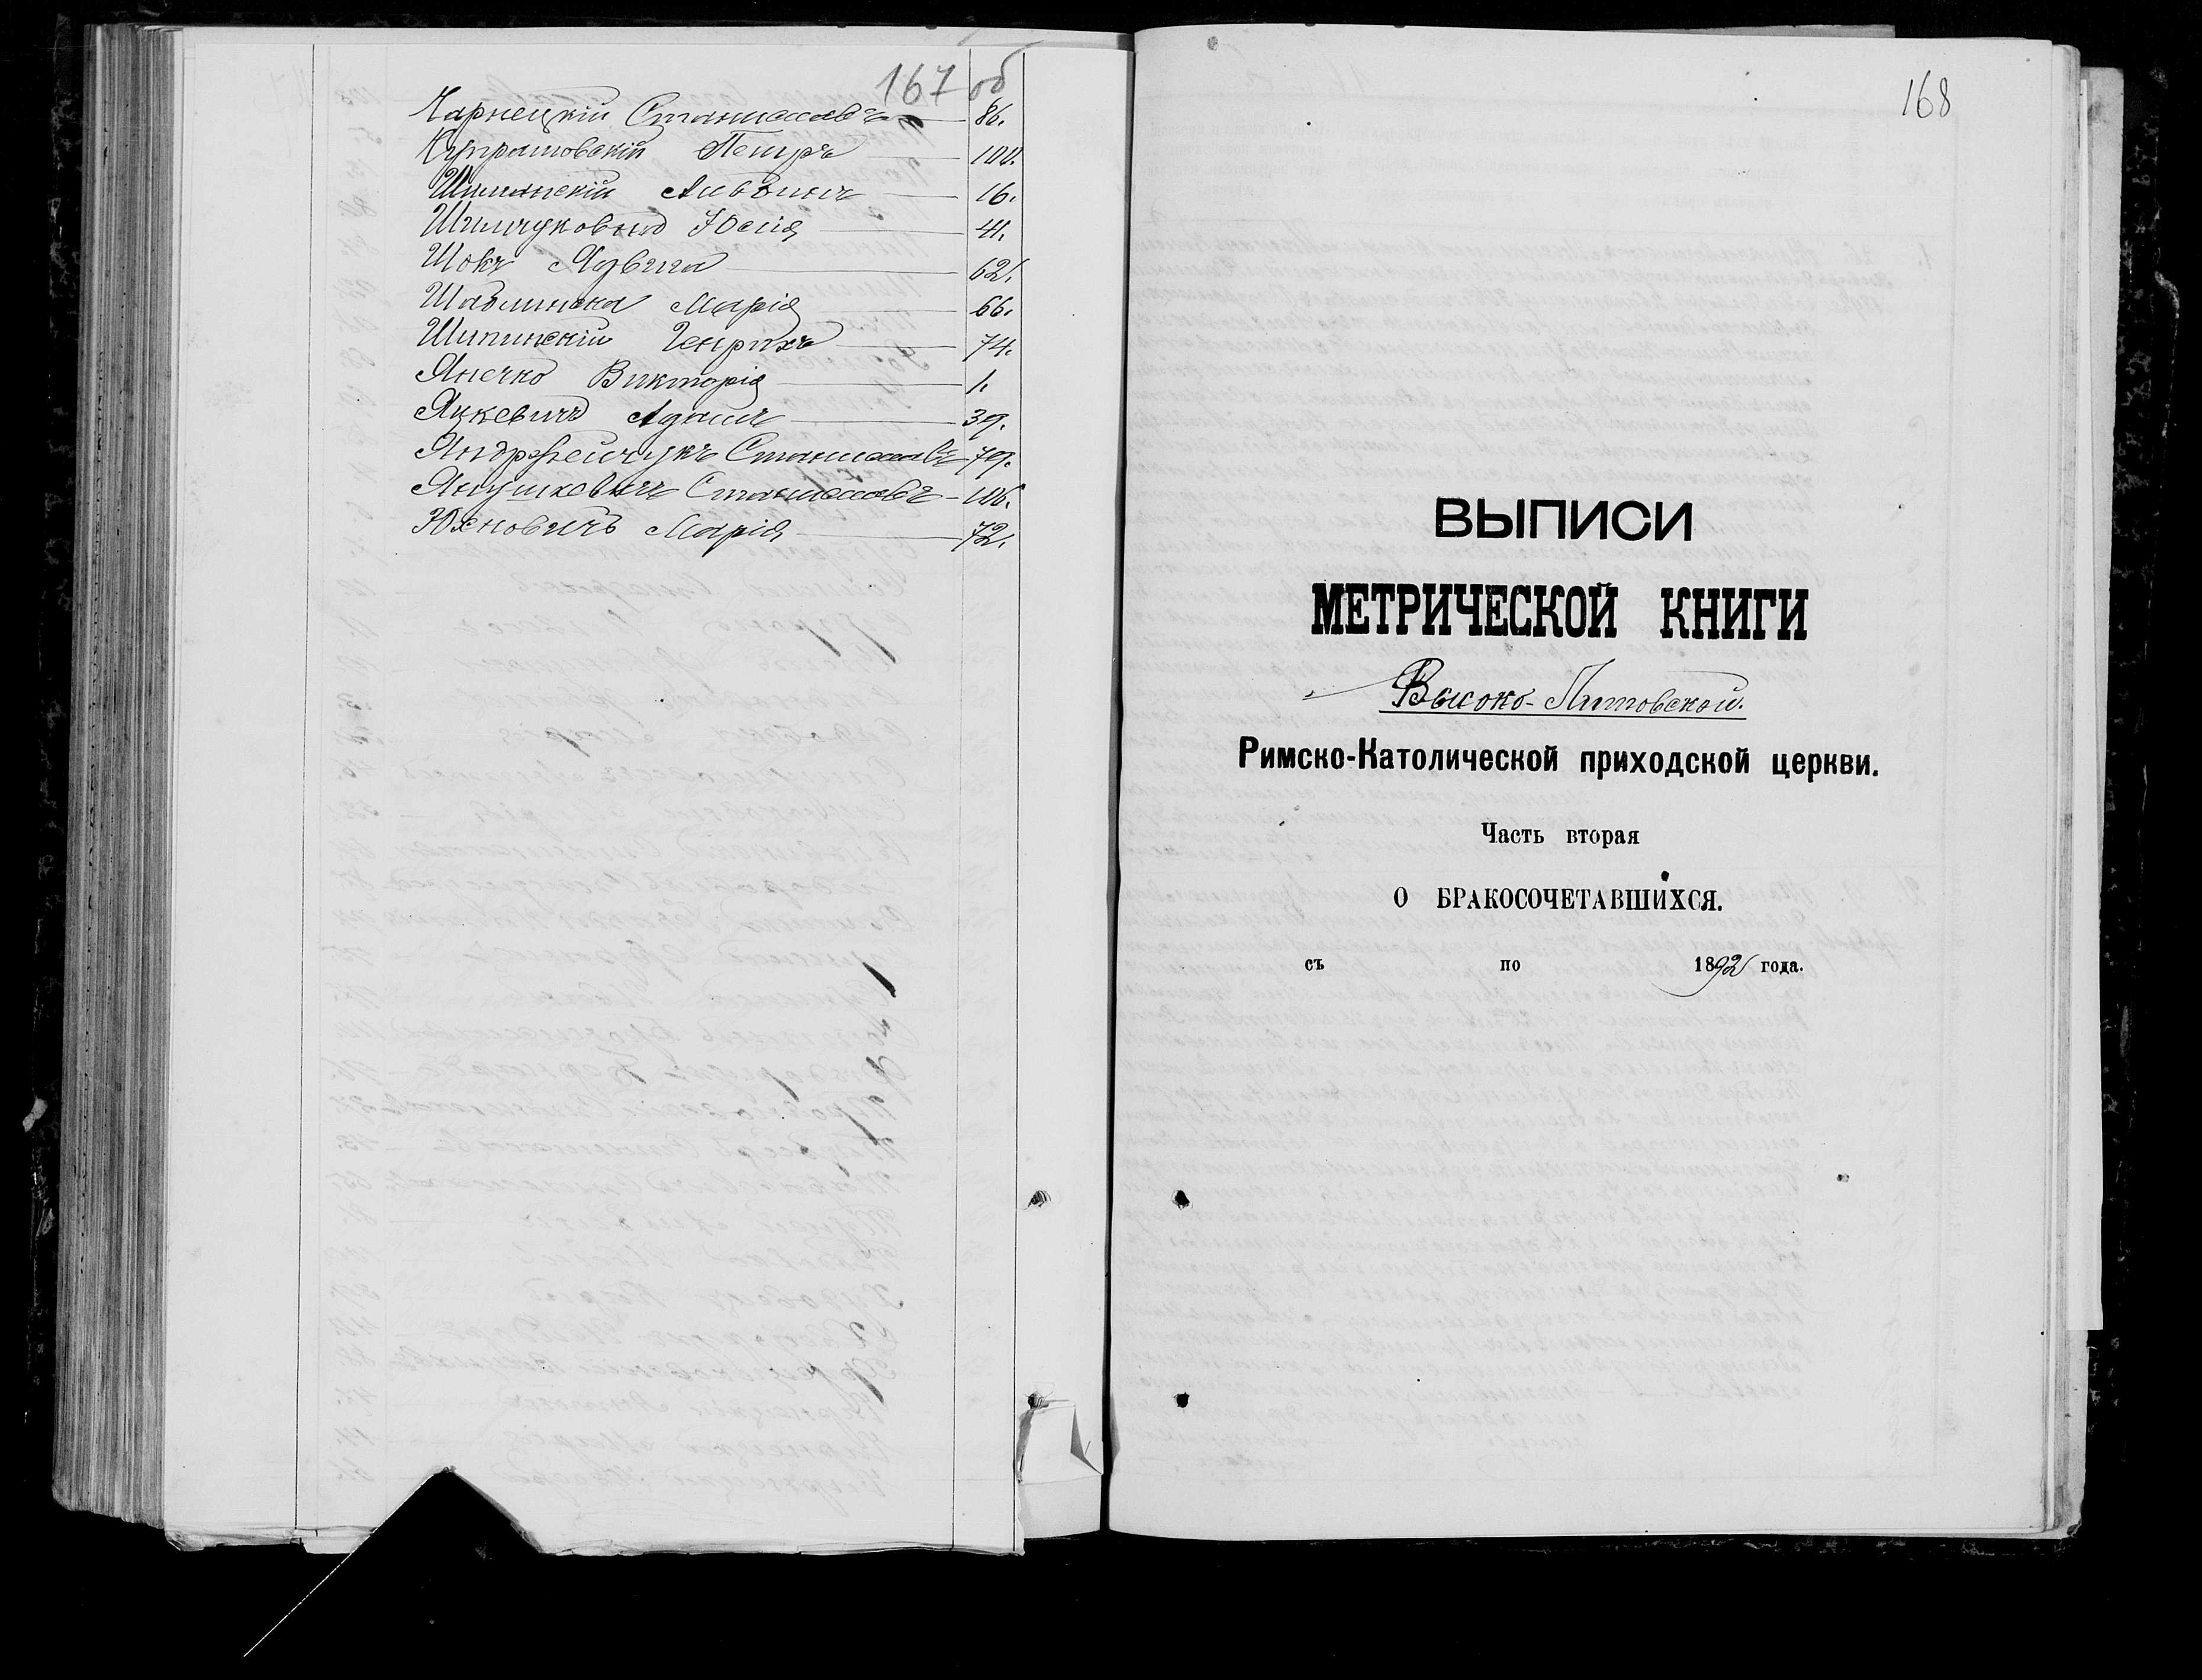 167 об
Чарнецкій Станиславъ 86.
Купратовскій Петръ 100.
Шиманскій Альбинъ 16.
Шимчуковна Юзія 41.
Шокъ Ядвига 62.
Шаблинска Марія 66.
Шипинскій Генрихъ 74.
Янечко Викторія 1.
Яцкевичъ Адамъ 39.
Яндржейчукъ Станиславъ 79.
Янушкевичъ Станиславъ 106.
Юхновичъ Марія 72.
168
ВЫПИСИ
МЕТРИЧЕСКОЙ КНИГИ
Высоко-Литовской.
Римско-Католической приходской церкви.
Часть вторая
О БРАКОСОЧЕТАВШИХСЯ.
съ по 1892 года.